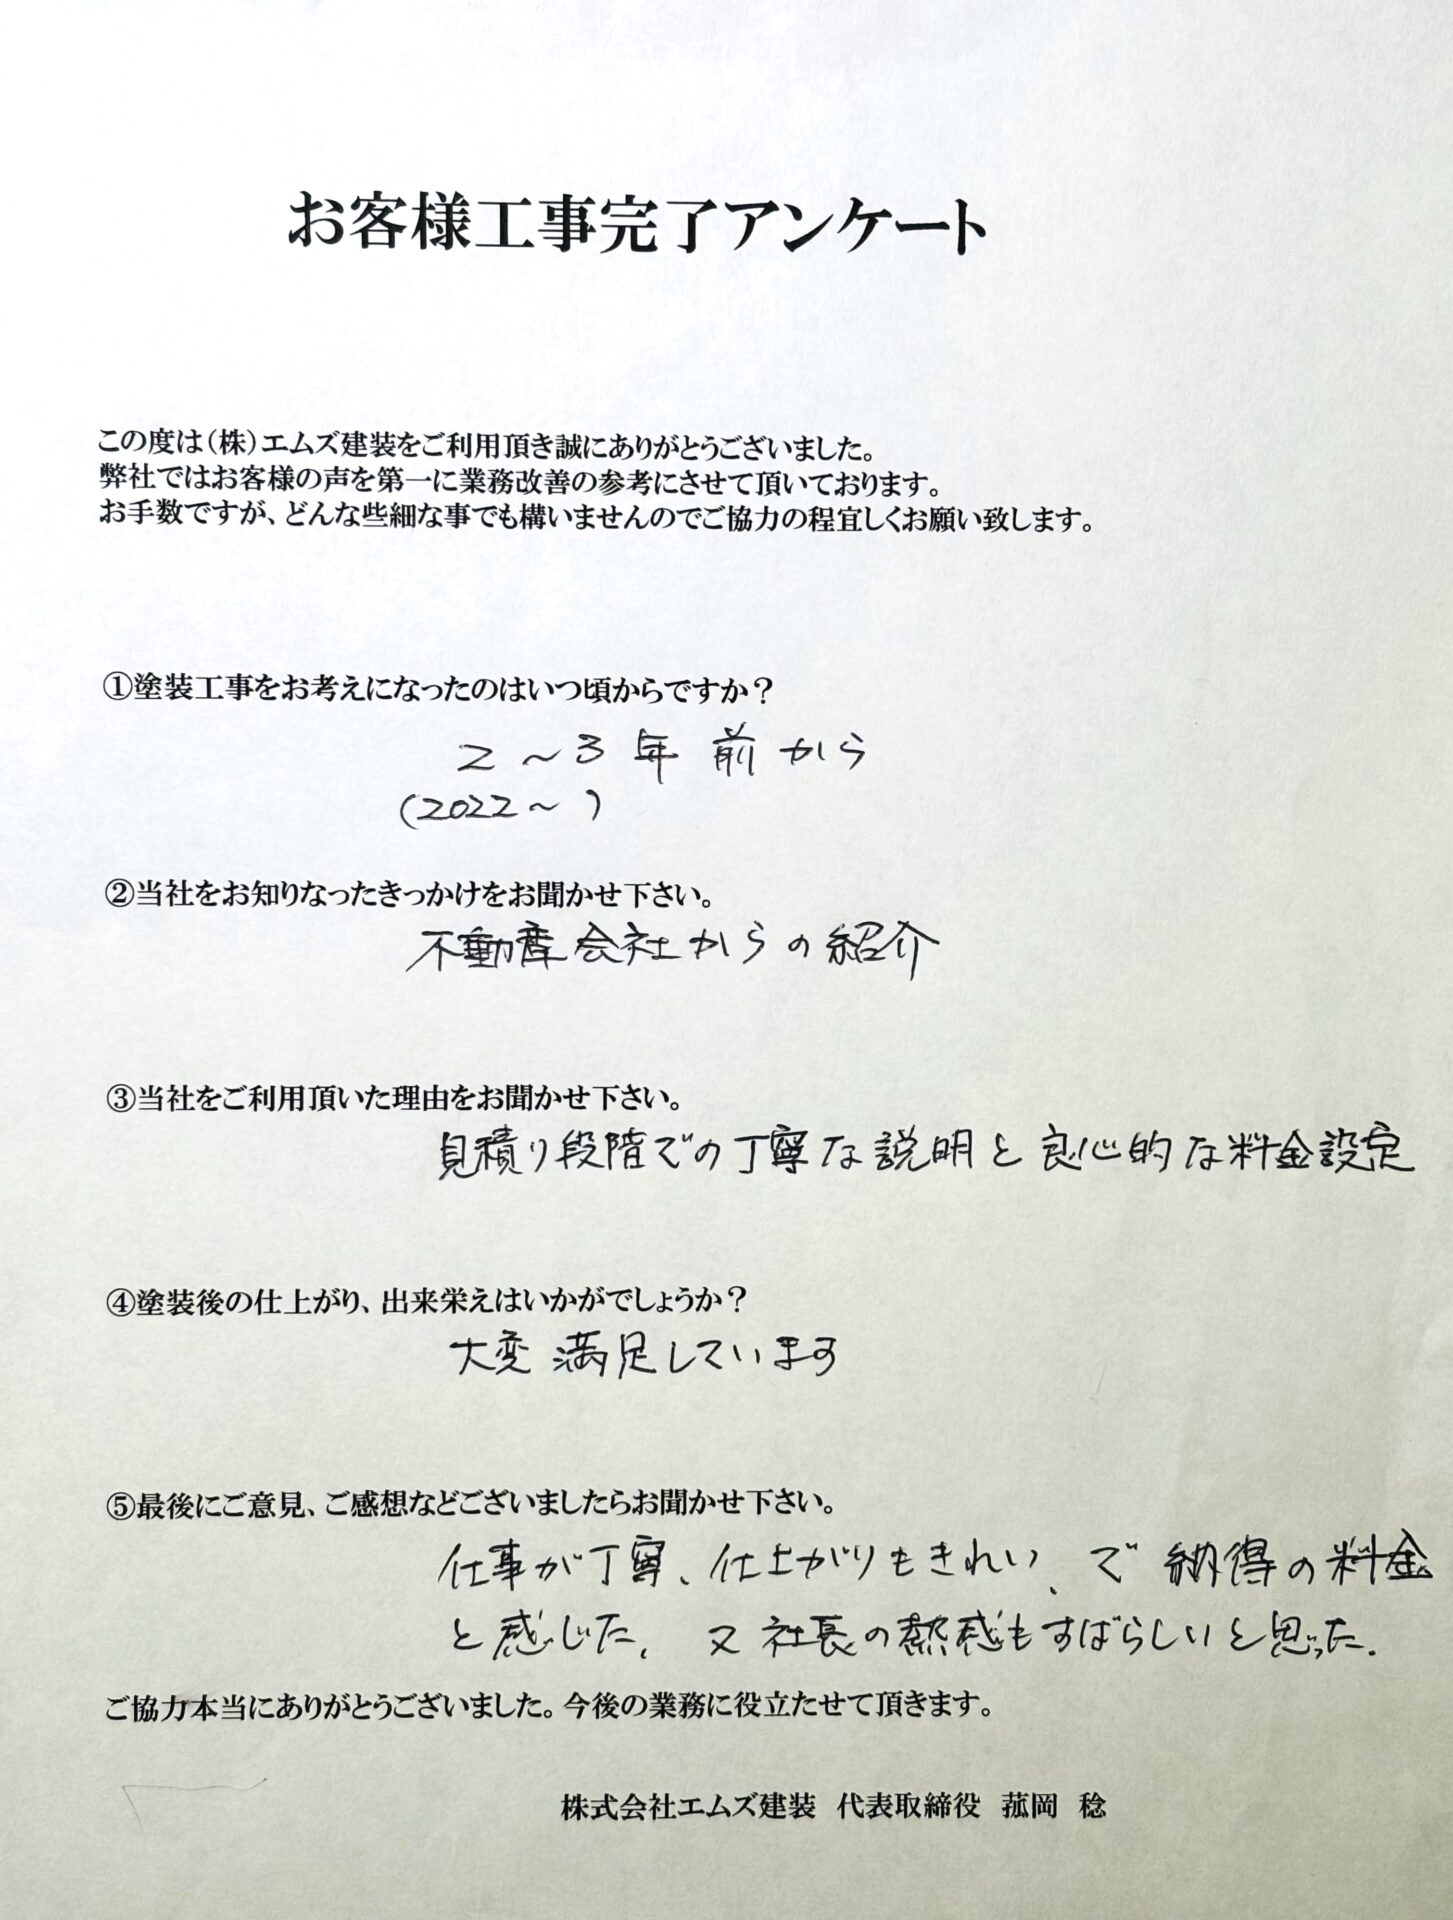 お客様工事完了アンケート
この度は（株）エムズ建装をご利用頂き誠にありがとうございました。
弊社ではお客様の声を第一に業務改善の参考にさせて頂いております。
お手数ですが、どんな些細な事でも構いませんのでご協力の程宜しくお願い致します。
①塗装工事をお考えになったのはいつ頃からですか？
2～3年前から
（2022～）
②当社をお知りなったきっかけをお聞かせ下さい。
不動産会社からの紹介
③当社をご利用頂いた理由をお聞かせ下さい。
見積り段階での丁寧な説明と良心的な料金設定
④塗装後の仕上がり、出来栄えはいかがでしょうか？
大変満足しています
⑤最後にご意見、ご感想などございましたらお聞かせ下さい。
仕事が丁寧、仕上がりもきれい、で納得の料金
と感じた、又社長の熱感もすばらしいと思った。
ご協力本当にありがとうございました。今後の業務に役立たせて頂きます。
株式会社エムズ建装　代表取締役　菰岡　稔